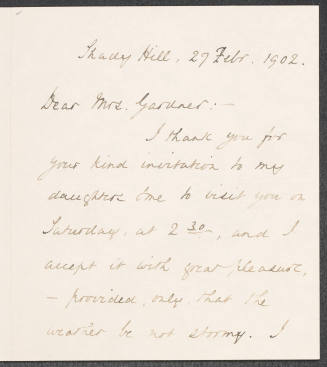 Shady Hill, 27 Febr. 1902.
Dear Mrs. Gardner: -
I thank you for
your kind invitation to my
daughters & me to visit you on
Saturday, at 2 30, and I
accept it with great pleasure,
- provided, only, that the
weather be not stormy. I